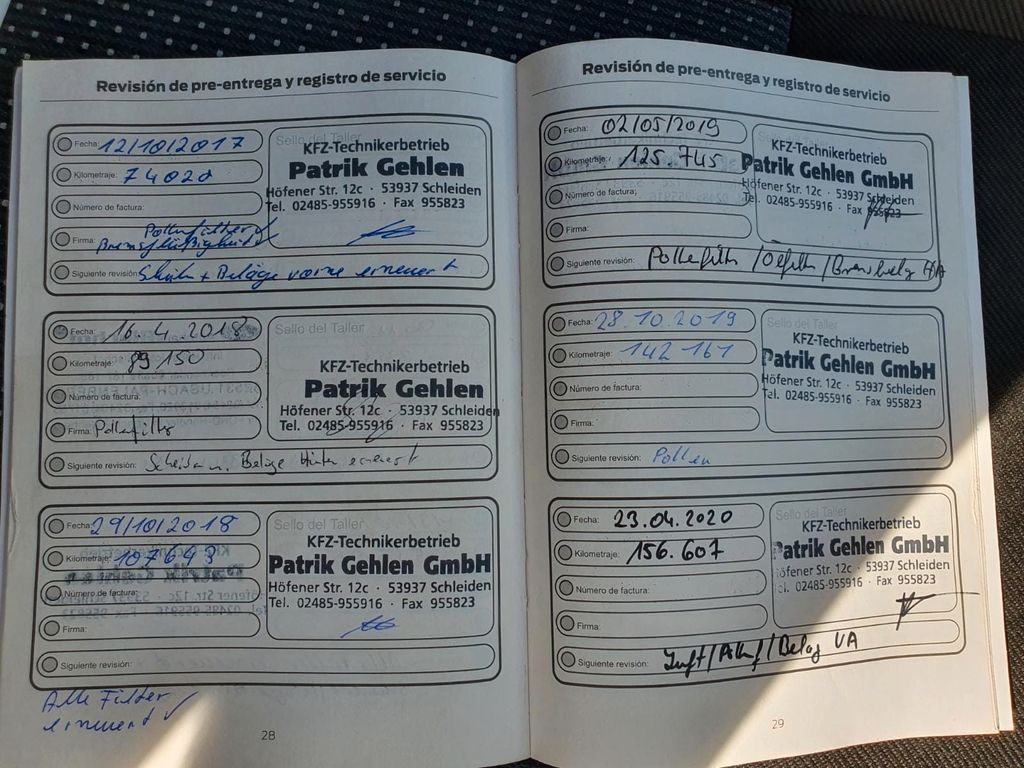 Revisión de pre-entrega y registro de servicio
Fecha: 12/10/2017
Kilometraje: 74020
Número de factura:
Firma: Pollenfilter ✓
Bremsflüßigkeit ✓
Siguiente revisión: Scheiben + Beläge vorne erneuert
Sello del Taller
KFZ-Technikerbetrieb
Patrik Gehlen
Höfener Str. 12c · 53937 Schleiden
Tel. 02485-955916 · Fax 955823
Fecha: 16.4.2018
Kilometraje: 89150
Número de factura:
Firma: Pollenfilter
Siguiente revisión: Scheiben u. Beläge hinten erneuert
Sello del Taller
KFZ-Technikerbetrieb
Patrik Gehlen
Höfener Str. 12c · 53937 Schleiden
Tel. 02485-955916 · Fax 955823
Fecha: 29/10/2018
Kilometraje: 107643
Número de factura:
Firma:
Siguiente revisión:
Sello del Taller
KFZ-Technikerbetrieb
Patrik Gehlen GmbH
Höfener Str. 12c · 53937 Schleiden
Tel. 02485-955916 · Fax 955823
Alle Filter
erneuert ✓
28
Revisión de pre-entrega y registro de servicio
Fecha: 02/05/2019
Kilometraje: 125.745
Número de factura:
Firma:
Siguiente revisión: Pollefilter / Ölfilter / Bremsbelag HA
Sello del Taller
KFZ-Technikerbetrieb
Patrik Gehlen GmbH
Höfener Str. 12c · 53937 Schleiden
Tel. 02485-955916 · Fax 955823
Fecha: 28.10.2019
Kilometraje: 142 161
Número de factura:
Firma:
Siguiente revisión: Pollen
Sello del Taller
KFZ-Technikerbetrieb
Patrik Gehlen GmbH
Höfener Str. 12c · 53937 Schleiden
Tel. 02485-955916 · Fax 955823
Fecha: 23.04.2020
Kilometraje: 156.607
Número de factura:
Firma:
Siguiente revisión: Luft / Belag VA
Sello del Taller
KFZ-Technikerbetrieb
Patrik Gehlen GmbH
Höfener Str. 12c · 53937 Schleiden
Tel. 02485-955916 · Fax 955823
29